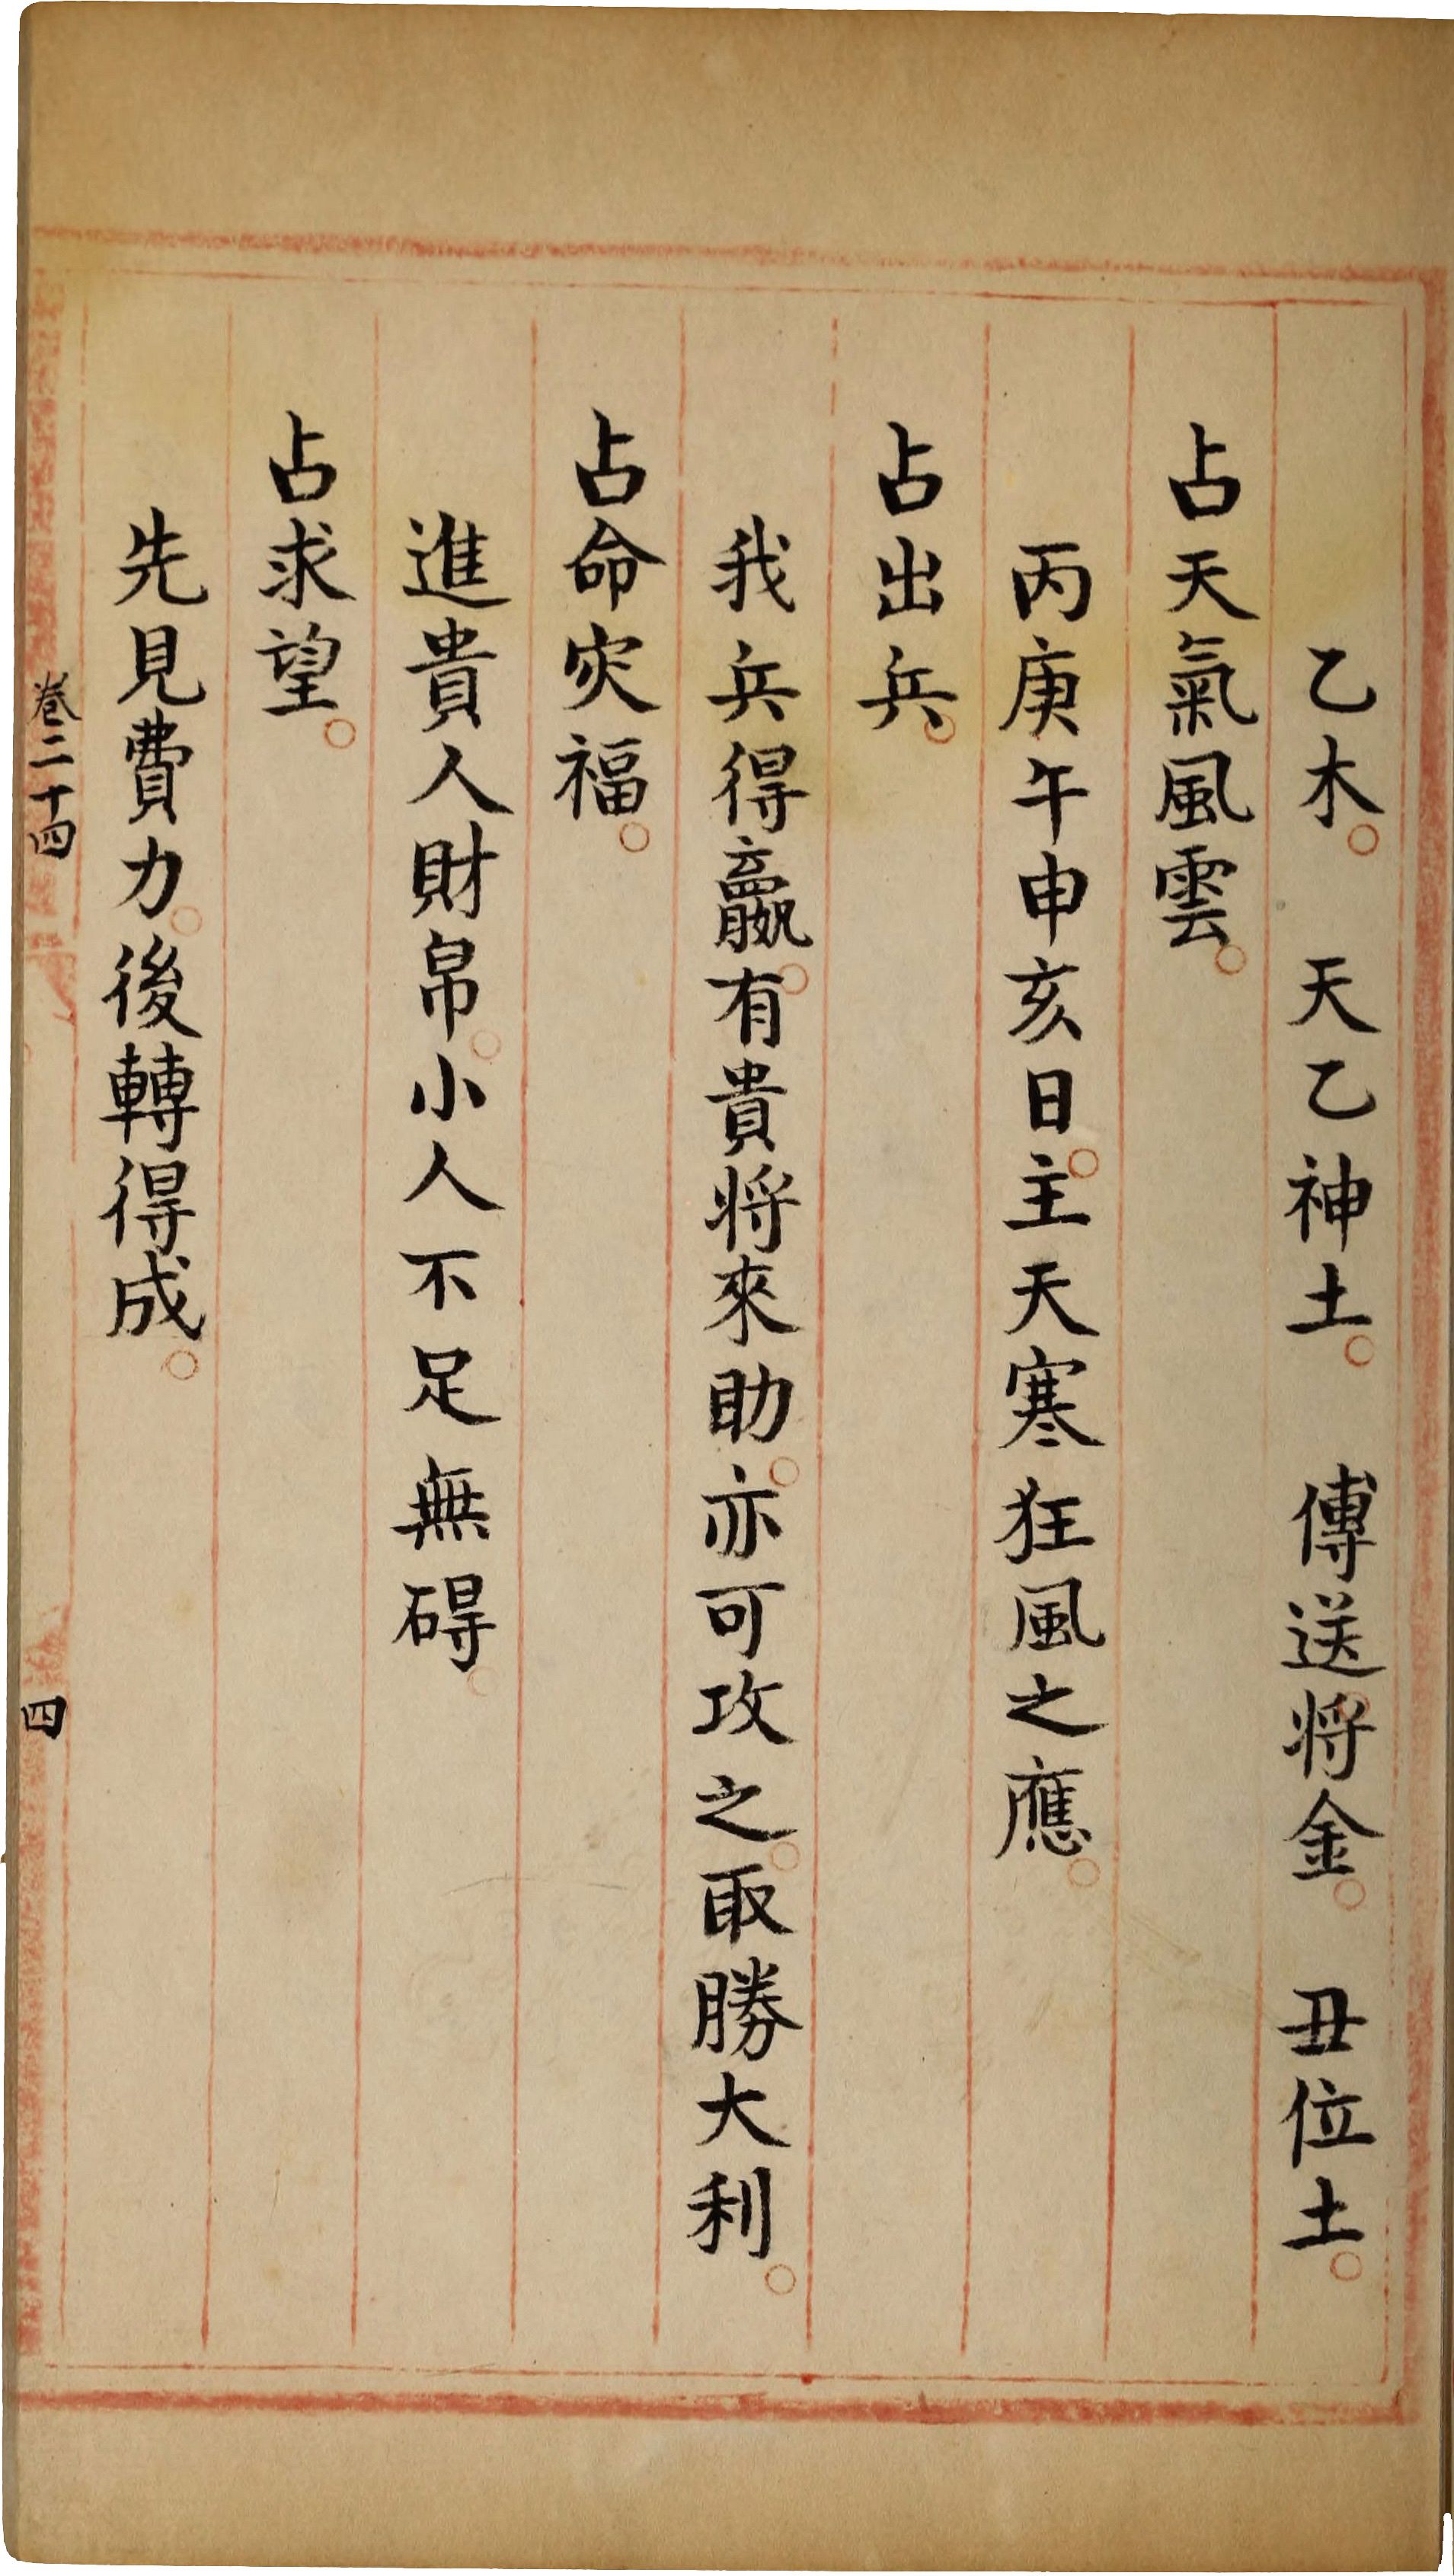 乙木。　天乙神土。　傳送將金。　丑位土。
占天氣風雲。
丙庚午申亥日。主天寒狂風之應。
占出兵。
我兵得贏。有貴將來助。亦可攻之。取勝大利。
占命灾福。
進貴人財帛。小人不足無碍。
占求望。
先見費力。後轉得成。
卷二十四
四